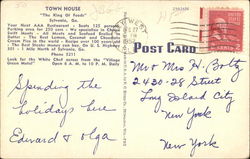 TOWN HOUSE
"The King of Foods"
Sylvania, Ga.
Your Most AAA Restaurant - Seats 125 persons
Parking space for 200 cars - We specialize in Charcoal
Broiled Meats - All Meats and Seafood Broiled in
Butter - The Best Lemon, Cocoanut and Chocolate
Cream Pies in the world - Recipe over 100 years old
The Best Steaks money can buy. On U. S. Highway
301 - 1 Mile North of Sylvania, Ga.
Phone 5211
Look for the White Chef across from the "Village
Green Motel" Open 6 A.M. to 10 P.M. Daily
POST CARD
Spending the
holidays here
Edward & Olga
Mr & Mrs H. Boltz
2430-28 Street
Long Island City
New York
New York